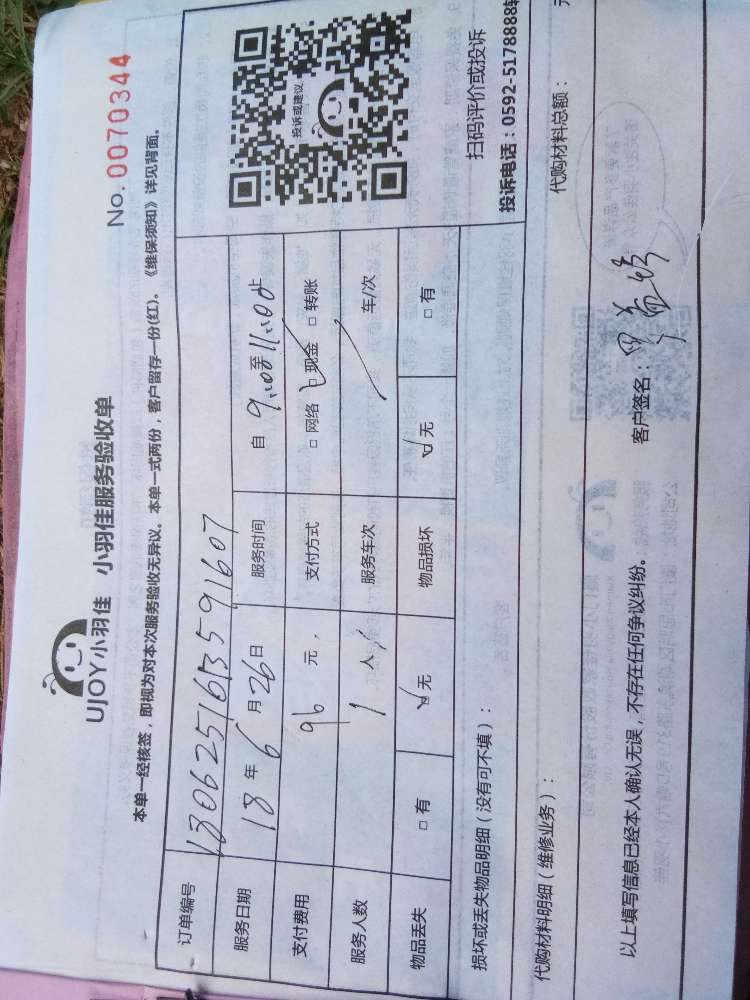 UJOY小羽佳 小羽佳服务验收单
No. 0070344
本单一经核签，即视为对本次服务验收无异议。本单一式两份，客户留存一份(红)。《维保须知》详见背面。
订单编号 180625161359 1607
服务日期 18 年 6 月 26 日 服务时间 自 9:00 至 11:00止
支付费用 96 元， 支付方式 □ 网络 ☑ 现金 □ 转账
服务人数 1 人 服务车次 / 车/次
物品丢失 □ 有 ☑ 无 物品损坏 ☑ 无 □ 有
投诉或建议
扫码评价或投诉
投诉电话：0592-5178888转
损坏或丢失物品明细（没有可不填）：
代购材料明细（维修业务）： 代购材料总额： 元
以上填写信息已经本人确认无误，不存在任何争议纠纷。 客户签名：